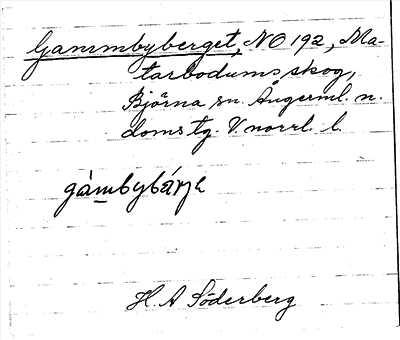 Gammbyberget, NO 192, Ma-
tarbodums skog,
Björna sn. Ångerml. n.
doms tg. V. norrl. l.
gámbybárjɛ
H. A Söderberg